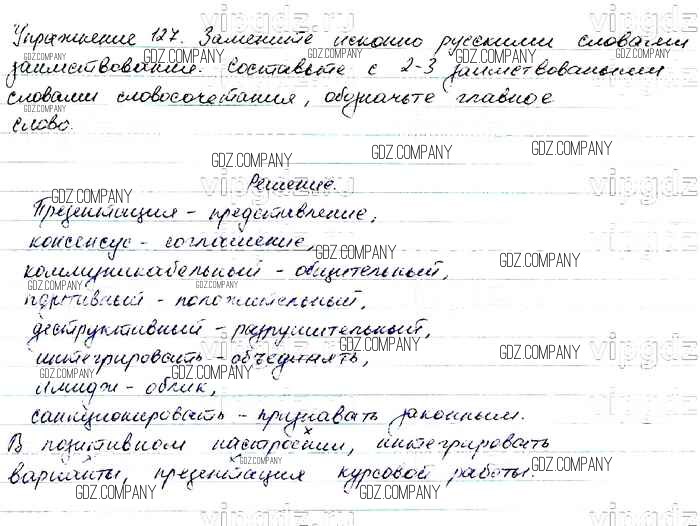 Упражнение 127. Замените исконно русскими словами
заимствования. Составьте с 2-3 заимствованными
словами словосочетания, обозначьте главное
слово.
Решение.
Презентация - представление,
консенсус - соглашение,
коммуникабельный - общительный,
позитивный - положительный,
деструктивный - разрушительный,
интегрировать - объединять,
имидж - облик,
санкционировать - признавать законным.
В позитивном настроении, интегрировать
варианты, презентация курсовой работы.
vipgdz.ru
GDZ.COMPANY